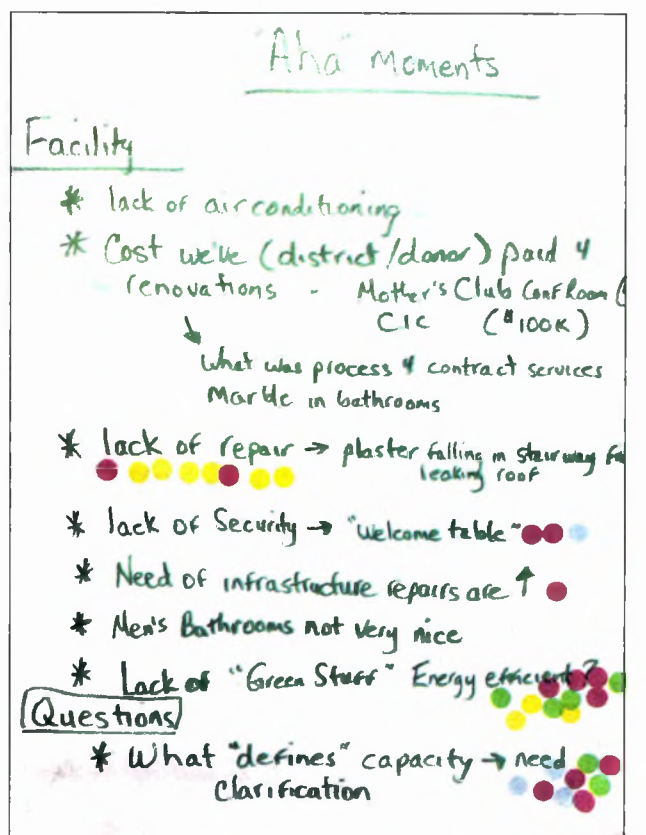 "Aha" Moments
Facility
* lack of airconditioning
* Cost we've (district/donor) paid 4
renovations - Mother's Club Conf Room (
CIC ($100K)
What was process 4 contract services
Marble in bathrooms
* lack of repair → plaster falling in stairway
leaking roof
* lack of Security → "Welcome table"
* Need of infrastructure repairs are ↑
* Men's Bathrooms not very nice
* Lack of "Green Stuff" Energy efficient?
Questions
* What "defines" capacity → need
clarification